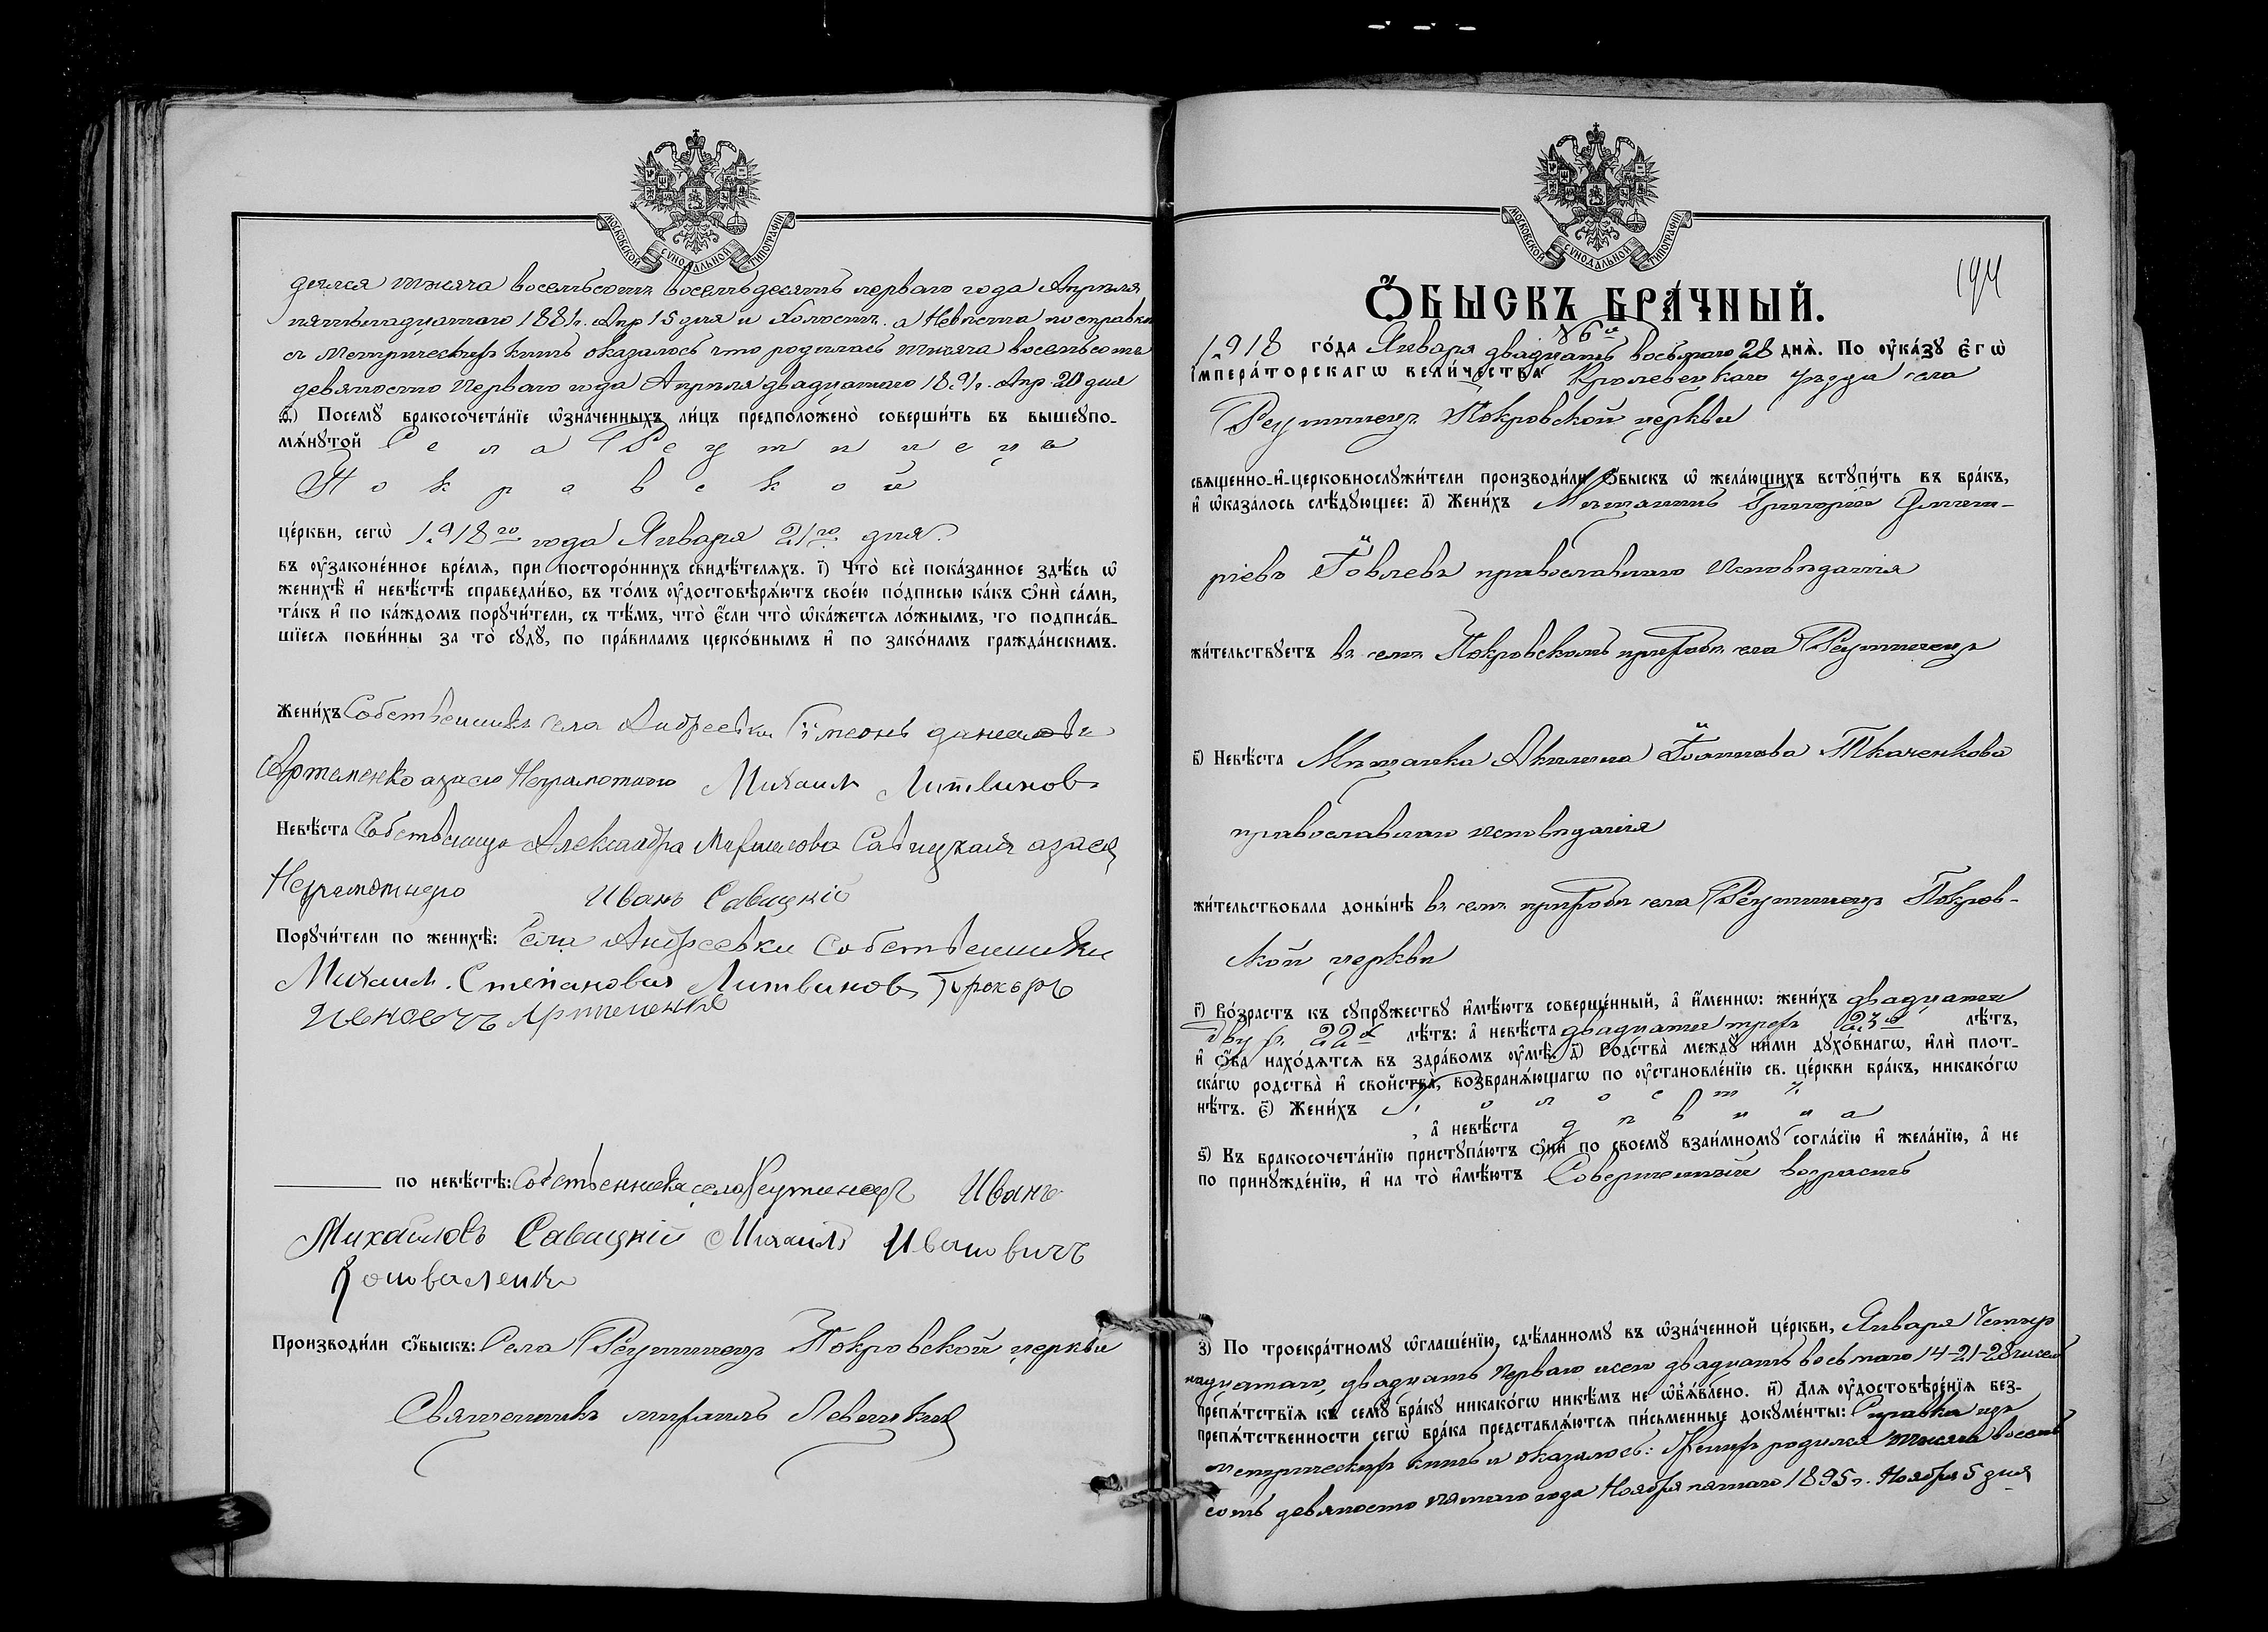 МОСКОВСКОЙ СѴНОДАЛЬНОЙ ТИПОГРАФІИ
дился тысяча восемьсотъ восемьдесятъ перваго года Апрѣля
пятьнадцатаго 1881г. Апр 15 дня и Холостъ. а Невѣста по справки
съ Метрическихъ книгъ оказалось что родилась тысяча восемьсотъ
девяносто перваго года Апрѣля двадцатаго 1891г. Апр. 20 дня
в҃) Посемꙋ бракосочета́нїе ѡ҆зна́ченныхъ ли́цъ предположено̀ соверши́ть въ вышеꙋпо-
мѧ́нꙋтой Села Реутинецъ
Покровской
це́ркви, сегѡ̀ 1918го года Января 21го дня.
въ ᲂу҆законе́нное вре́мѧ, при посторо́ннихъ свидѣ́телѧхъ. і҃) Что̀ всѐ пока́занное здѣ́сь ѡ҆
женихѣ̀ и҆ невѣ́стѣ справедли́во, въ то́мъ ᲂу҆достовѣрѧ́ютъ свое́ю по́дписью ка́къ ѻ҆нѝ са́ми,
та́къ и҆ по ка́ждомъ порꙋчи́тели, съ тѣ́мъ, что̀ є҆́сли что̀ ѡ҆ка́жетсѧ ло́жнымъ, то подписа́в-
шїесѧ пови́нны за то̀ сꙋдꙋ̀, по пра́виламъ церко́внымъ и҆ по зако́намъ гражда́нскимъ.
Жени́хъ Собственникъ села Андреевки Симеонъ Данилов
Артеменко азаєю Неграмотого Михаил Литвинов
Невѣ́ста Собственица Александра Михаилова Савицкая азаєя
Неграмотнуро Иванъ Савицкій
Порꙋчи́тели по женихѣ̀: Села Андреевки Собственники
Михаил. Степанович Литвинов,
Артеменко
по невѣ́стѣ: Собственника села Реутинецъ Иванъ
Михайловъ Савицкій Михаилъ Ивановичъ
Коноваленко
Производи́ли ѻ҆́быскъ: Села Реутинецъ Покровской церкви
Священникъ Михаилъ Левицкій
МОСКОВСКОЙ СѴНОДАЛЬНОЙ ТИПОГРАФІИ
194
Ѻ҆́БЫСКЪ БРА́ЧНЫЙ.
№ 6й
1918 го́да Января двадцать восьмаго 28 днѧ̀. По ᲂу҆ка́зꙋ є҆гѡ̀
і҆мпера́торскагѡ вели́чества Кролевецкаго уѣзда села
Реутинецъ Покровской церкви
свѧще́нно-и҆-церковнослꙋжи́тели производи́ли ѻ҆́быскъ ѡ҆ жела́ющихъ встꙋпи́ть въ бра́къ,
и҆ ѡ҆каза́лось слѣ́дꙋющее: а҃) Жени́хъ Мѣщанинъ Григорій Дмит-
ріевъ Іовлевъ православнаго исповѣданія
жи́тельствꙋетъ въ семъ Покровскомъ приходѣ села Реутинецъ
в҃) Невѣ́ста Мѣщанка Акилина Ткаченкова
православнаго исповѣданія
жи́тельствовала доны́нѣ въ семъ приходѣ села Реутинецъ Покров-
ской церкви
г҃) Во́зрастъ къ сꙋпрꙋ́жествꙋ и҆мѣ́ютъ соверше́нный, а҆ и҆́меннѡ: жени́хъ двадцати
двухъ 22х лѣ́тъ: а҆ невѣ́ста двадцати трехъ 23х лѣ́тъ,
и҆ ѻ҆́ба нахо́дѧтсѧ въ здра́вомъ ᲂу҆мѣ̀. д҃) Родства̀ междꙋ̀ ни́ми дꙋхо́внагѡ, и҆лѝ пло́т-
скагѡ родства̀ и҆ свойства̀, возбранѧ́ющагѡ по ᲂу҆становле́нїю св. це́ркви бра́къ, никако́гѡ
нѣ́тъ. є҃) Жени́хъ Холостъ
, а҆ невѣ́ста дѣвица
ѕ҃) Къ бракосочета́нїю пристꙋпа́ютъ ѻ҆нѝ по своемꙋ̀ взаи́мномꙋ согла́сїю и҆ жела́нїю, а҆ не
по принꙋжде́нїю, и҆ на то̀ и҆мѣ́ютъ Совершенный возрастъ
з҃) По троекра́тномꙋ ѡ҆глаше́нїю, сдѣ́ланномꙋ въ ѡ҆зна́ченной це́ркви, Января Четыр
надцатаго, двадцать перваго и сего двадцать восьмаго 14-21-28 чиселъ
препѧ́тствїѧ къ семꙋ̀ бра́кꙋ никако́гѡ никѣ́мъ не ѡ҆б̾ѧ́влено. и҃) Длѧ ᲂу҆достовѣре́нїѧ без-
препѧ́тственности сегѡ̀ бра́ка представлѧ́ютсѧ пи́сьменные докꙋме́нты: Справка изъ
метрическихъ книгъ и оказалось: Женихъ родился тысяча восемь
сотъ девяносто пятаго года Ноября пятаго 1895г. Ноября 5 дня